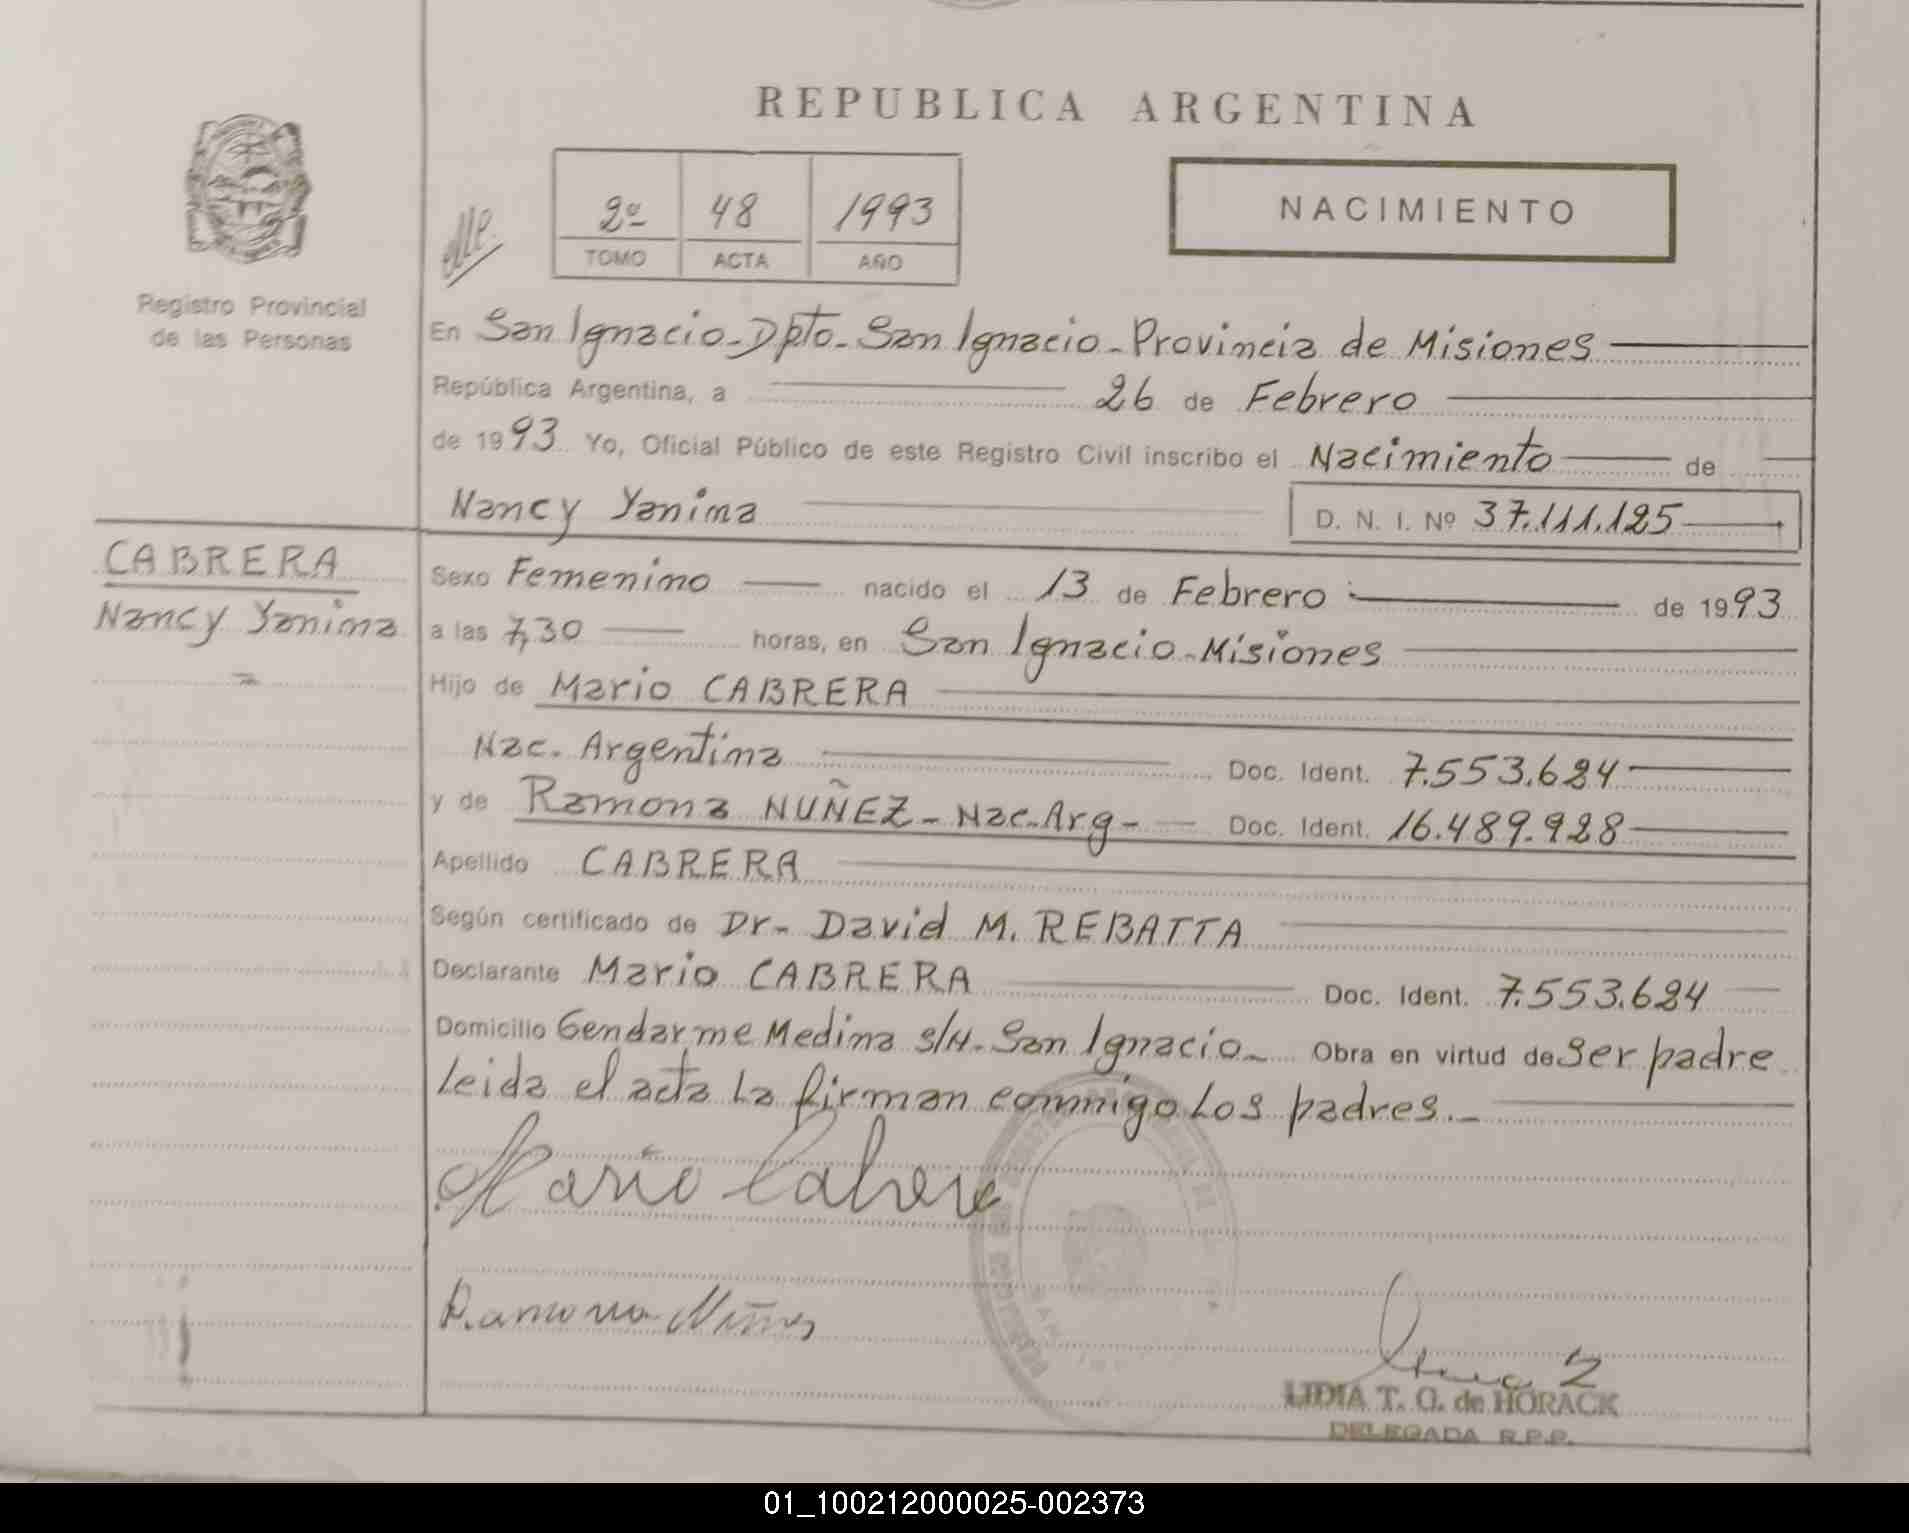 REPUBLICA ARGENTINA
2º 48 1993
TOMO ACTA AÑO
NACIMIENTO
Registro Provincial
de las Personas
En San Ignacio - Dpto - San Ignacio - Provincia de Misiones
República Argentina, a 26 de Febrero
de 1993 Yo, Oficial Público de este Registro Civil inscribo el Nacimiento de
Nancy Yanina D. N. I. Nº 37.111.125
CABRERA
Nancy Yanina
Sexo Femenino nacido el 13 de Febrero de 1993
a las 7,30 horas, en San Ignacio - Misiones
Hijo de Mario CABRERA
Nac. Argentina Doc. Ident. 7.553.624
y de Ramona NUÑEZ - Nac. Arg - Doc. Ident. 16.489.928
Apellido CABRERA
Según certificado de Dr - David M. REBATTA
Declarante Mario CABRERA Doc. Ident. 7.553.624
Domicilio Gendarme Medina s/n - San Ignacio - Obra en virtud de ser padre
Leida el acta la firman conmigo los padres. -
Mario Cabrera
Ramona Núñez
LIDIA T. G. de HORACK
DELEGADA R.P.P.
01_100212000025-002373